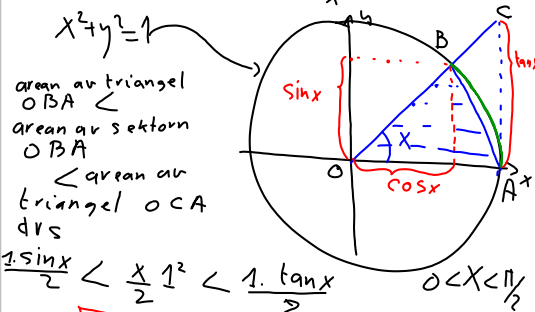 x²+y²=1
arean av triangel
OBA <
arean av sektorn
OBA
< arean av
triangel OCA
dvs
1·sinx/2 < x/2 1² < 1·tanx/2
0<x<π/2
y
C
B
tanx
sinx
x
O
cosx
A
x